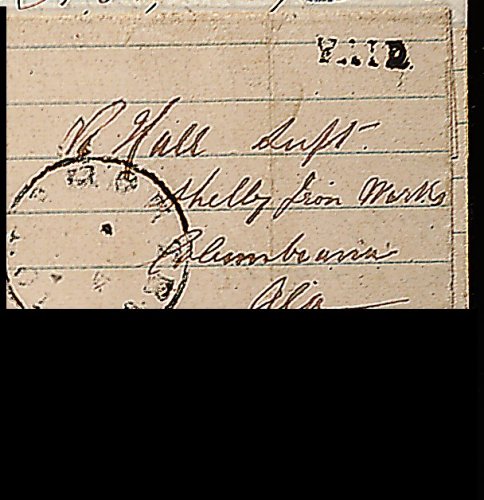 PAID.
Hall Supt.
Shelby Iron Works
Columbiana
Ala